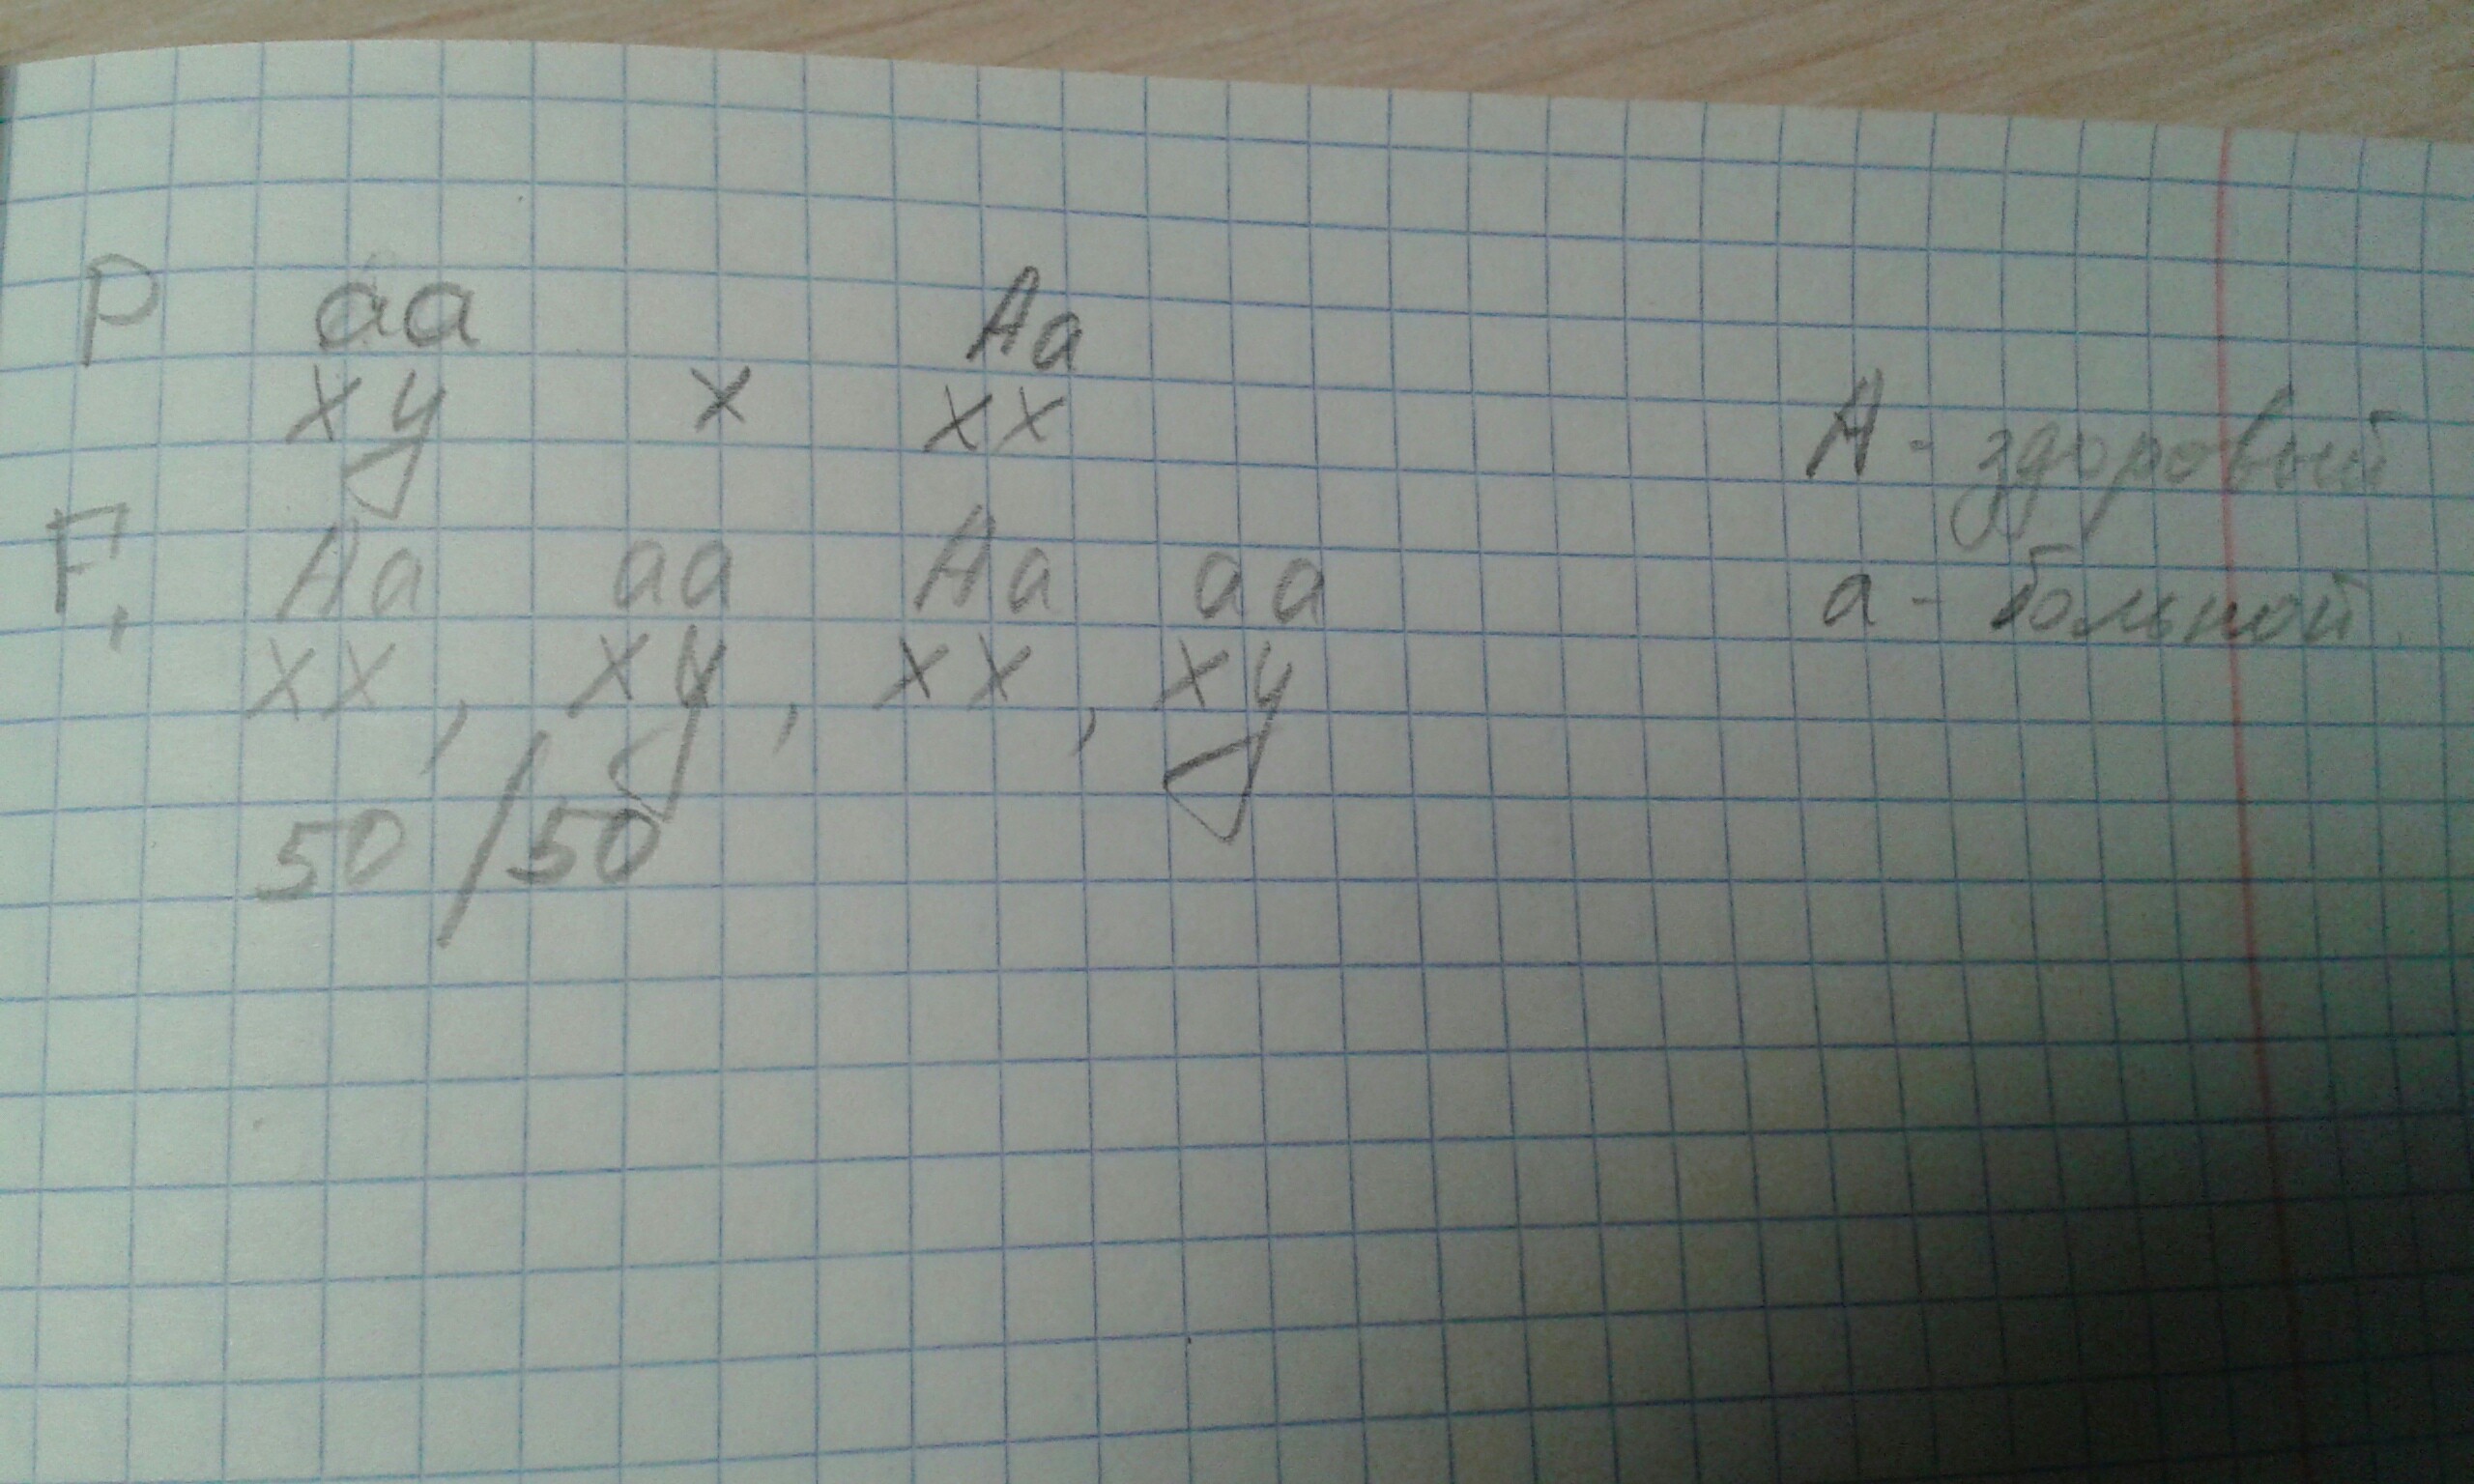 P aa Aa
xy x xx
A - здоровый
F₁ Aa aa Aa aa
a - больной
xx, xy, xx, xy
50/50